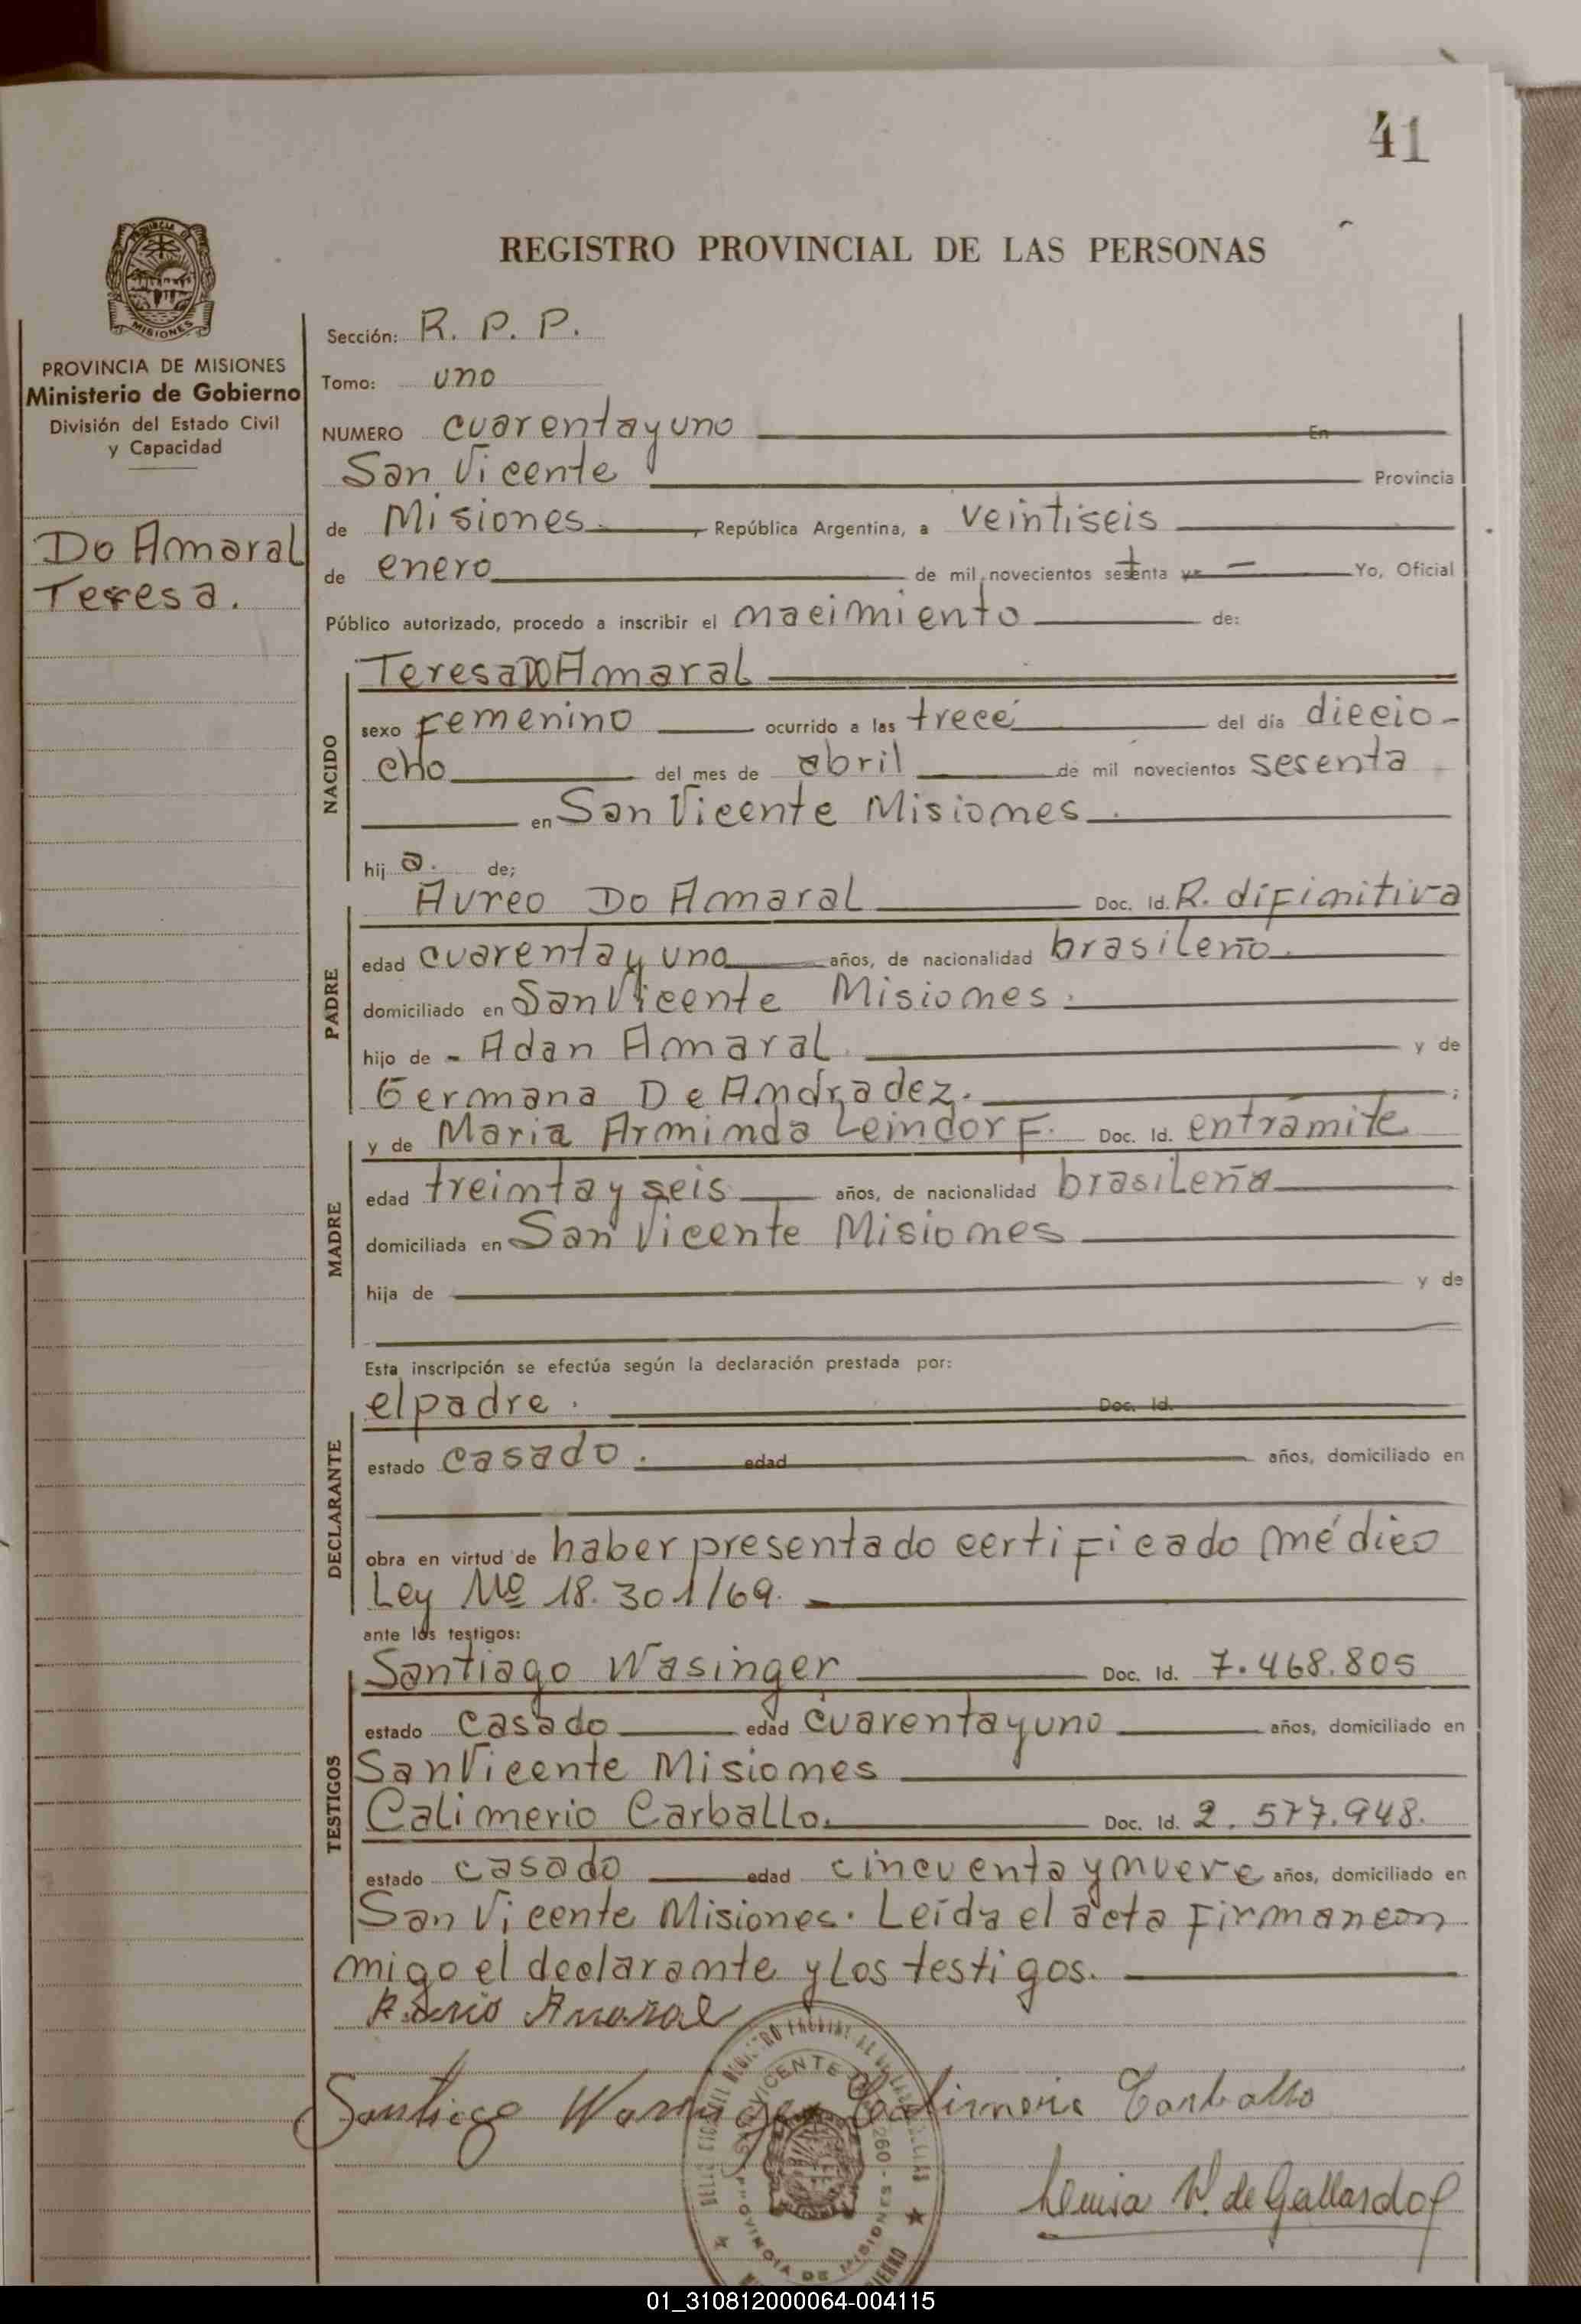 41
REGISTRO PROVINCIAL DE LAS PERSONAS
MISIONES
PROVINCIA DE MISIONES
Ministerio de Gobierno
División del Estado Civil
y Capacidad
Do Amaral
Teresa.
Sección: R. P. P.
Tomo: uno
NUMERO cuarentayuno En
San Vicente Provincia
de Misiones, República Argentina, a veintiseis
de enero de mil novecientos setenta y Yo, Oficial
Público autorizado, procedo a inscribir el nacimiento de:
NACIDO
Teresa DO Amaral
sexo femenino ocurrido a las trece del día diecio-
cho del mes de abril de mil novecientos sesenta
en San Vicente Misiones.
hij a. de;
PADRE
Aureo Do Amaral Doc. Id. R. difinitiva
edad cuarentay uno años, de nacionalidad brasileño.
domiciliado en San Vicente Misiones.
hijo de - Adan Amaral. y de
Germana De Andradez. ;
MADRE
y de Maria Arminda Leindorf. Doc. Id. entramite
edad treintay seis años, de nacionalidad brasileña
domiciliada en San Vicente Misiones
hija de y de
Esta inscripción se efectúa según la declaración prestada por:
DECLARANTE
elpadre. Doc. Id.
estado casado. edad años, domiciliado en
obra en virtud de haber presentado certificado médico
Ley Nº 18.301/69.
ante los testigos:
TESTIGOS
Santiago Wasinger Doc. Id. 7.468.805
estado casado edad cuarentayuno años, domiciliado en
San Vicente Misiones
Calimerio Carballo. Doc. Id. 2.577.948.
estado casado edad cincuenta ynueve años, domiciliado en
San Vicente Misiones. Leída el acta firmancon
migo el declarante y los testigos.
Amaral
Santiago Wasinger Calimerio Carballo
SAN VICENTE
PROVINCIA DE MISIONES
V. de Gallardo
01_310812000064-004115